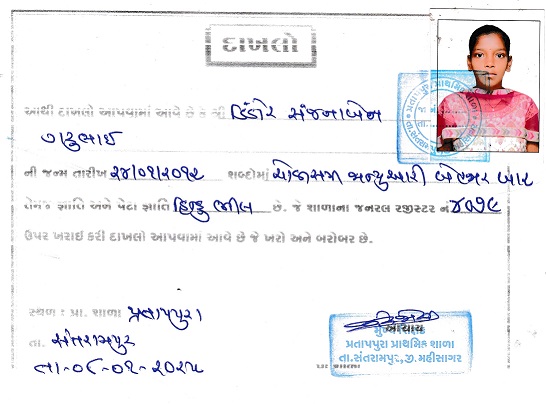 દાખલો
આથી દાખલો આપવામાં આવે છે કે શ્રી ડિંડોર સંજનાબેન
ની જન્મ તારીખ ૨૪/૦૧/૨૦૧૨ શબ્દોમાં ચોવીસમી જાન્યુઆરી બે હજાર બાર
તેમજ જ્ઞાતિ અને પેટા જ્ઞાતિ હિન્દુ ભીલ છે. જે શાળાના જનરલ રજીસ્ટર નં
ઉપર ખરાઈ કરી દાખલો આપવામાં આવે છે જે ખરો અને બરોબર છે.
સ્થળ : પ્રા. શાળા પ્રતાપપુરા
તા. સંતરામપુર
આચાર્ય
પ્રતાપપુરા પ્રાથમિક શાળા
તા.સંતરામપુર, જી.મહીસાગર